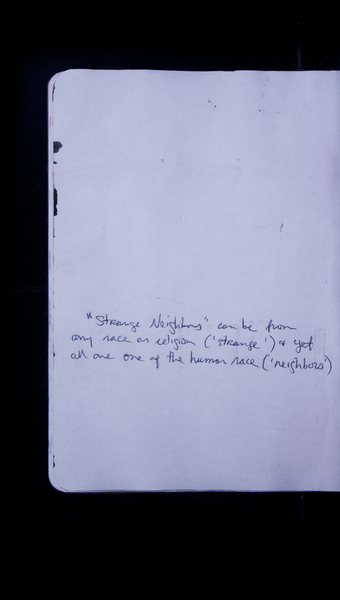 "Strange Neighbors" can be from
any race or religion ('strange') & yet
all are one of the human race ('neighbors')